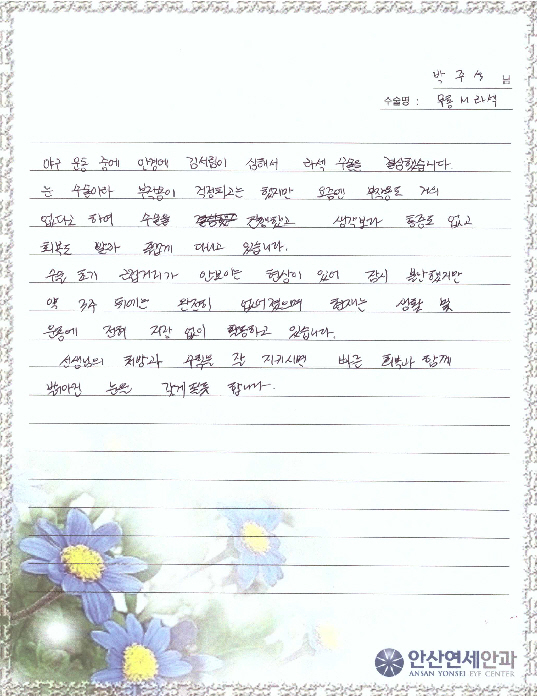 박 주 님
수술명 : 무통 M 라섹
야구 운동 중에 안경에 김서림이 심해서 라섹 수술을 결심했습니다.
눈 수술이라 부작용이 걱정되고는 했지만 요즘엔 부작용도 거의
없다고 하여 수술을 진행했고 생각보다 통증도 없고
회복도 빨라 즐겁게 다니고 있습니다.
수술 초기 근접거리가 안보이는 현상이 있어 잠시 불안했지만
약 3주 뒤에는 완전히 없어졌으며 현재는 생활 및
운동에 전혀 지장 없이 활동하고 있습니다.
선생님의 처방과 수칙을 잘 지키시면 빠른 회복과 함께
밝아진 눈을 갖게 될듯 합니다.
안산연세안과
ANSAN YONSEI EYE CENTER